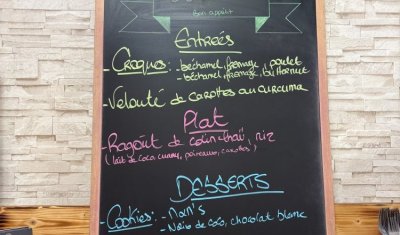 Bon appétit
Entrées
- Croques: - béchamel, fromage, poulet
- béchamel, fromage, butternut
- Velouté de carottes au curcuma
Plat
- Ragoût de colin thaï, riz
(lait de coco, curry, poireaux, carottes)
DESSERTS
- Cookies: - Nan's
- Noix de coco, chocolat blanc